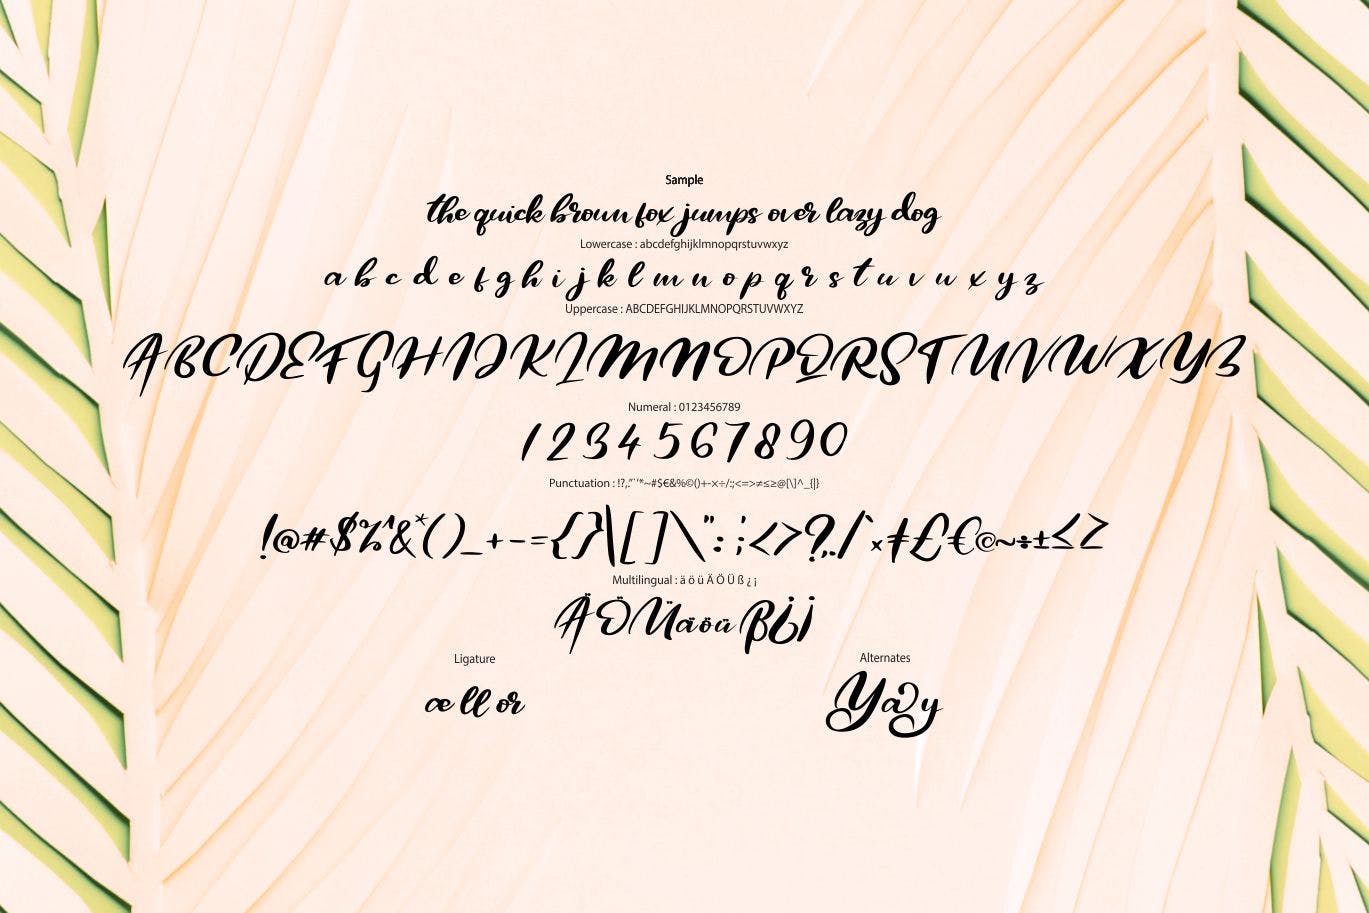 Sample
the quick brown fox jumps over lazy dog
Lowercase : abcdefghijklmnopqrstuvwxyz
a b c d e f g h i j k l m n o p q r s t u v w x y z
Uppercase : ABCDEFGHIJKLMNOPQRSTUVWXYZ
ABCDEFGHIJKLMNOPQRSTUVWXYZ
Numeral : 0123456789
1234567890
Punctuation : !?,."`'*~#$€&%©()+-×÷/:;<=>≠≤≥@[\]^_{|}
!@#$%^&*()_+-={}|[]\":;<>?,./`×≠£€©~÷±≤≥
Multilingual : ä ö ü Ä Ö Ü ß ¿ ¡
ÄÖÜäöüß¿¡
Ligature
æ ll or
Alternates
Yay